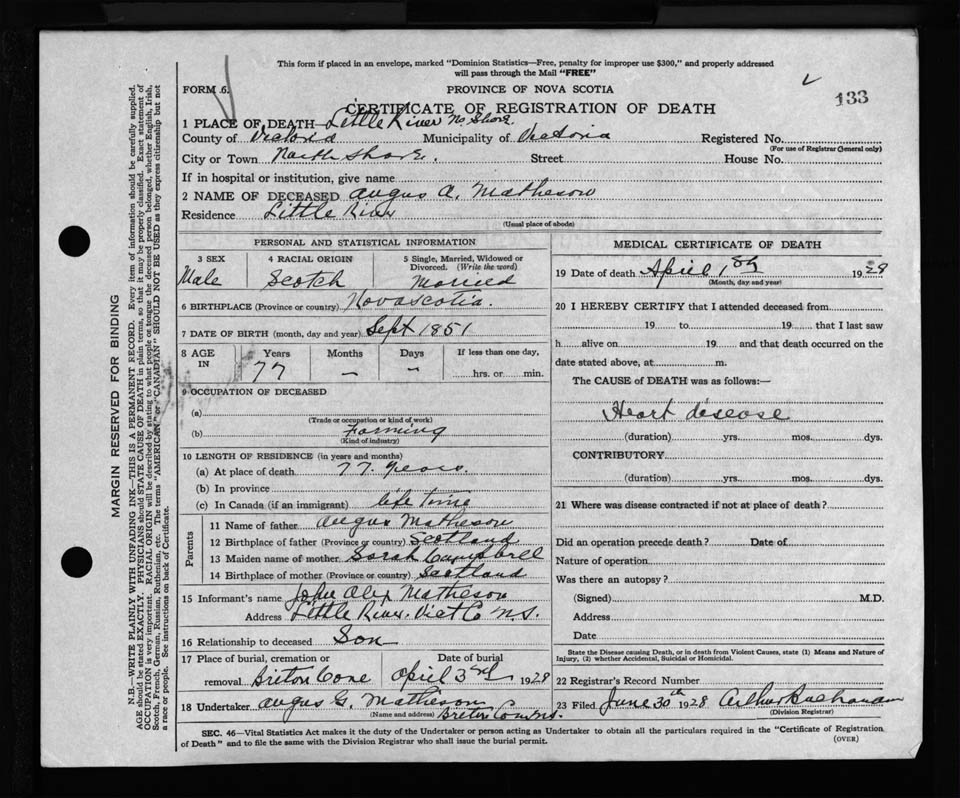 This form if placed in an envelope, marked "Dominion Statistics—Free, penalty for improper use $300," and properly addressed
will pass through the Mail "FREE"
FORM 6.
PROVINCE OF NOVA SCOTIA
133
CERTIFICATE OF REGISTRATION OF DEATH
1 PLACE OF DEATH—Little River No Shore.
County of Victoria Municipality of Victoria Registered No.
(For use of Registrar General only)
City or Town North Shore. Street House No.
If in hospital or institution, give name
2 NAME OF DECEASED Angus A. Matheson
Residence Little River
(Usual place of abode)
PERSONAL AND STATISTICAL INFORMATION
3 SEX 4 RACIAL ORIGIN 5 Single, Married, Widowed or Divorced. (Write the word)
Male Scotch Married
6 BIRTHPLACE (Province or country) Novascotia.
7 DATE OF BIRTH (month, day and year) Sept 1851
8 AGE IN Years Months Days If less than one day,
77 — — hrs. or min.
9 OCCUPATION OF DECEASED
(a)
(Trade or occupation or kind of work)
(b) Farming
(Kind of industry)
10 LENGTH OF RESIDENCE (in years and months)
(a) At place of death 77 years.
(b) In province
(c) In Canada (if an immigrant) life time
Parents
11 Name of father Angus Matheson
12 Birthplace of father (Province or country) Scotland
13 Maiden name of mother Sarah Campbell
14 Birthplace of mother (Province or country) Scotland
15 Informant's name John Alex Matheson
Address Little River. Vict Co N.S.
16 Relationship to deceased Son
17 Place of burial, cremation or Date of burial
removal Briton Cove April 3rd 1928
18 Undertaker Angus G. Matheson
(Name and address) Briton Cove N.S.
MEDICAL CERTIFICATE OF DEATH
19 Date of death April 1st 1928
(Month, day and year)
20 I HEREBY CERTIFY that I attended deceased from
19 to 19 that I last saw
h alive on 19 and that death occurred on the
date stated above, at m.
The CAUSE of DEATH was as follows:—
Heart disease
(duration) yrs. mos. dys.
CONTRIBUTORY
(duration) yrs. mos. dys.
21 Where was disease contracted if not at place of death?
Did an operation precede death? Date of
Nature of operation
Was there an autopsy?
(Signed) M.D.
Address
Date
State the Disease causing Death, or in death from Violent Causes, state (1) Means and Nature of
Injury, (2) whether Accidental, Suicidal or Homicidal.
22 Registrar's Record Number
23 Filed June 30th 1928 Arthur Buchanan
(Division Registrar)
SEC. 46—Vital Statistics Act makes it the duty of the Undertaker or person acting as Undertaker to obtain all the particulars required in the "Certificate of Registration
of Death" and to file the same with the Division Registrar who shall issue the burial permit.
(OVER)
MARGIN RESERVED FOR BINDING
N.B.—WRITE PLAINLY WITH UNFADING INK—THIS IS A PERMANENT RECORD. Every item of information should be carefully supplied.
AGE should be stated EXACTLY. PHYSICIANS should STATE CAUSE OF DEATH in plain terms, so that it may be properly classified. Exact statement of
OCCUPATION is very important. RACIAL ORIGIN will be described by stating to what people or tongue the deceased person belonged, whether English, Irish,
Scotch, French, German, Russian, Ruthenian, etc. The terms "AMERICAN" or "CANADIAN" SHOULD NOT BE USED as they express citizenship but not
a race or people. See instructions on back of Certificate.